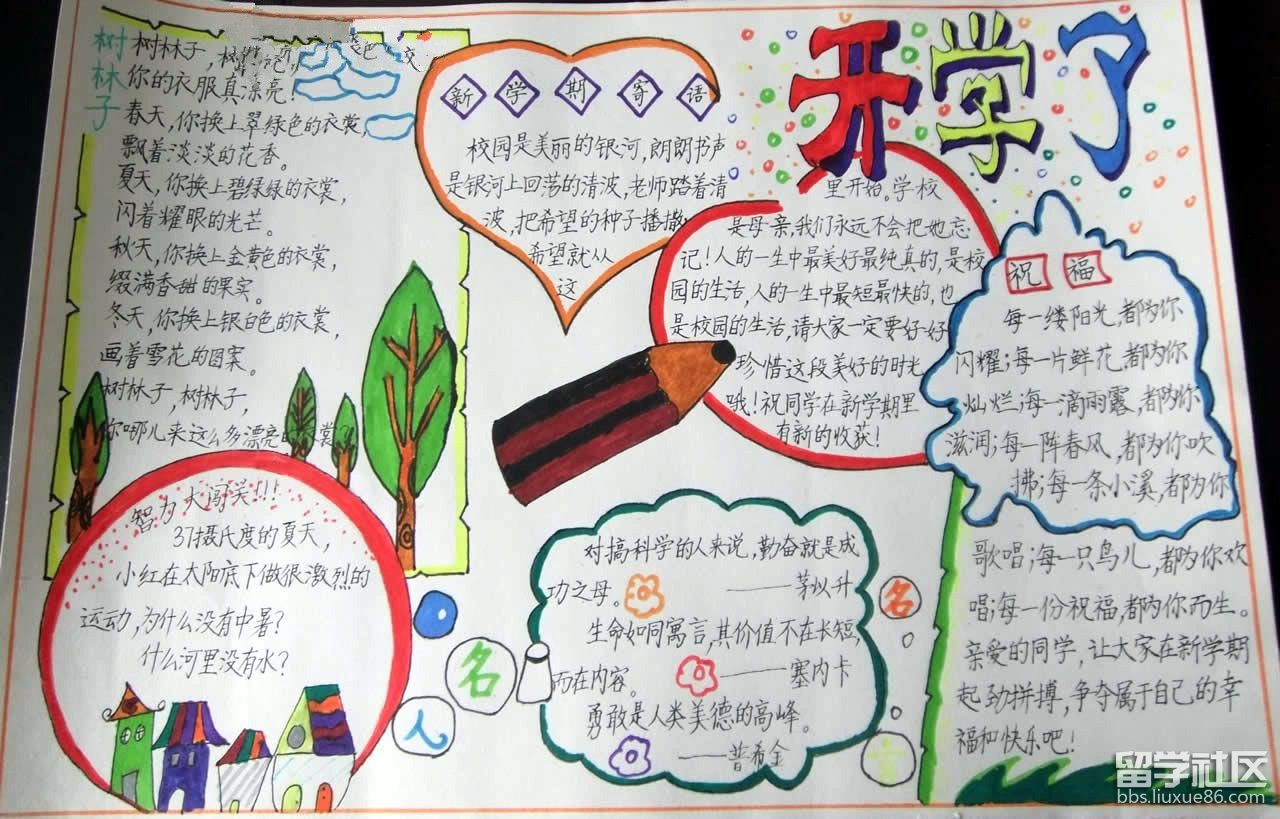 开学了
树林子
树林子,
你的衣服真漂亮!
春天,你换上翠绿色的衣裳,
飘着淡淡的花香。
夏天,你换上碧绿绿的衣裳,
闪着耀眼的光芒。
秋天,你换上金黄色的衣裳,
缀满香甜的果实。
冬天,你换上银白色的衣裳,
画着雪花的图案。
树林子,树林子,
你哪儿来这么多漂亮的衣裳?
新学期寄语
校园是美丽的银河,朗朗书声
是银河上回荡的清波,老师踏着清
波,把希望的种子播撒
希望就从
这
里开始。学校
是母亲,我们永远不会把她忘
记!人的一生中最美好最纯真的,是校
园的生活,人的一生中最短最快的,也
是校园的生活,请大家一定要好好
珍惜这段美好的时光
哦!祝同学在新学期里
有新的收获!
祝福
每一缕阳光,都为你
闪耀;每一片鲜花,都为你
灿烂;每一滴雨露,都为你
滋润;每一阵春风,都为你吹
拂;每一条小溪,都为你
歌唱;每一只鸟儿,都为你欢
唱;每一份祝福,都为你而生。
亲爱的同学,让大家在新学期
起劲拼搏,争夺属于自己的幸
福和快乐吧!
智力大闯关!!!
37摄氏度的夏天,
小红在太阳底下做很激烈的
运动,为什么没有中暑?
什么河里没有水?
名
人
名
言
对搞科学的人来说,勤奋就是成
功之母。
——茅以升
生命如同寓言,其价值不在长短,
而在内容。
——塞内卡
勇敢是人类美德的高峰。
——普希金
留学社区
bbs.liuxue86.com